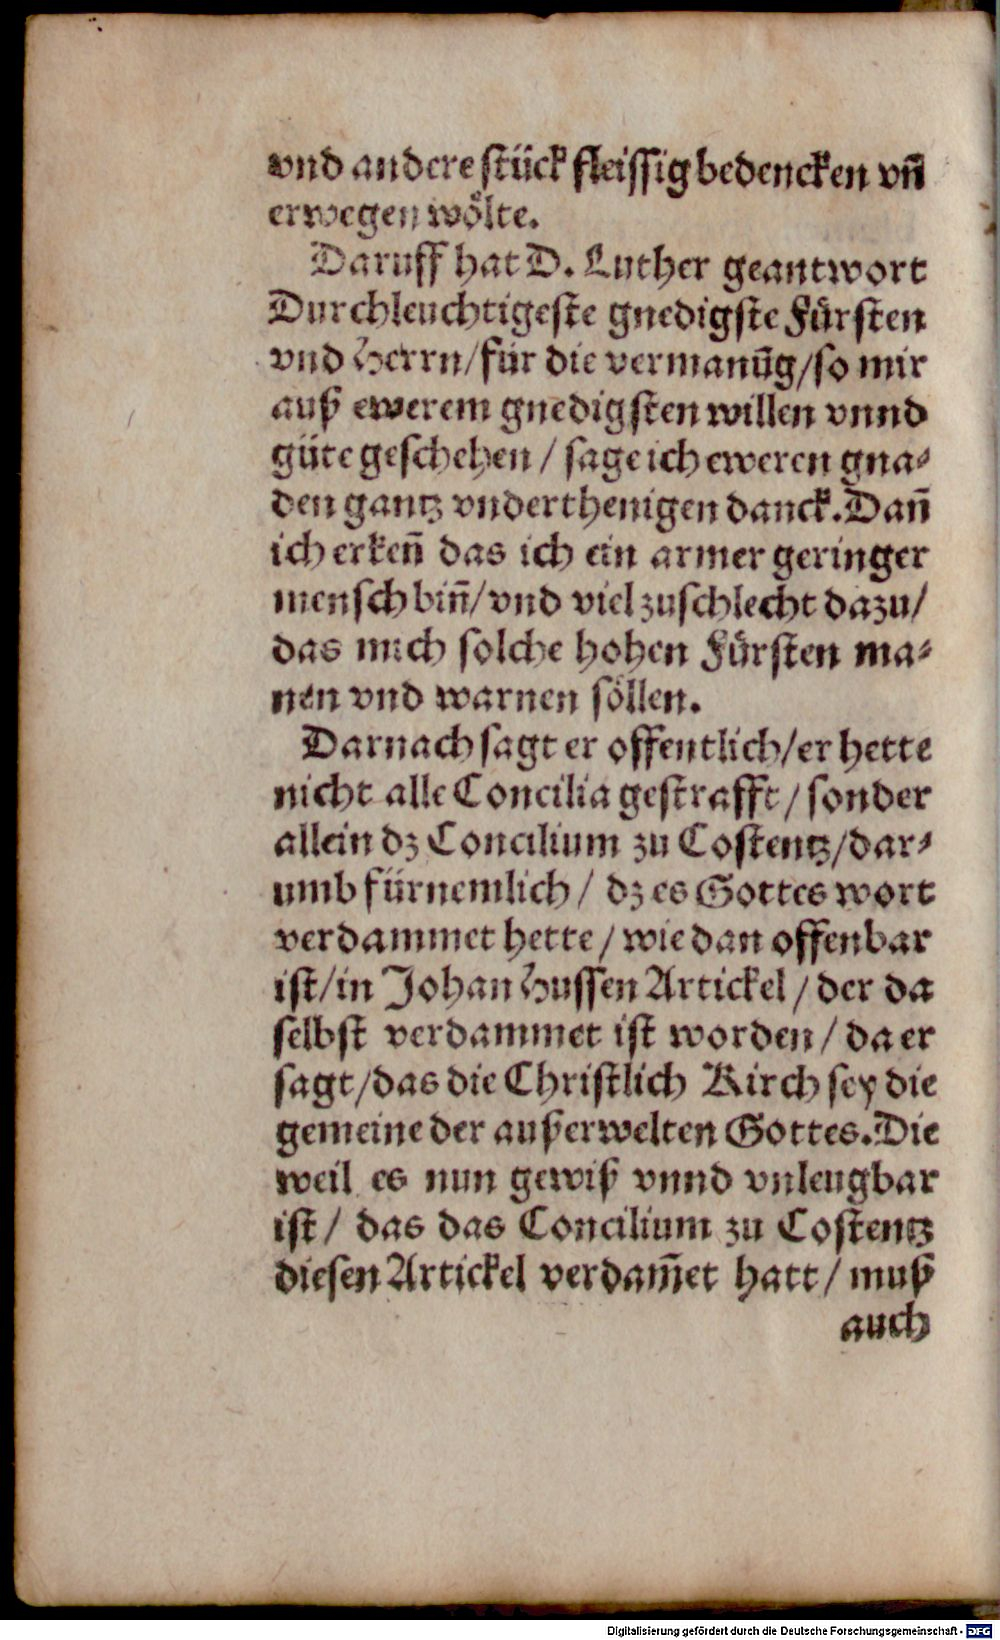 vnd andere stück fleissig bedencken vñ
erwegen wölte.
Daruff hat D. Luther geantwort
Durchleuchtigeste gnedigste Fürsten
vnd Herrn/für die vermanūg/so mir
auß ewerem gnedigsten willen vnnd
güte geschehen / sage ich eweren gna-
den gantz vnderthenigen danck. Dañ
ich erkeñ das ich ein armer geringer
mensch biñ/vnd viel zuschlecht dazu/
das mich solche hohen Fürsten ma-
nen vnd warnen söllen.
Darnach sagt er offentlich/er hette
nicht alle Concilia gestrafft / sonder
allein dz Concilium zu Costentz/dar-
umb fürnemlich / dz es Gottes wort
verdammet hette / wie dan offenbar
ist/in Johan Hussen Artickel / der da
selbst verdammet ist worden / da er
sagt/das die Christlich Kirch sey die
gemeine der außerwelten Gottes. Die
weil es nun gewiß vnnd vnleugbar
ist / das das Concilium zu Costentz
diesen Artickel verdam̄et hatt / muß
auch
Digitalisierung gefördert durch die Deutsche Forschungsgemeinschaft - DFG